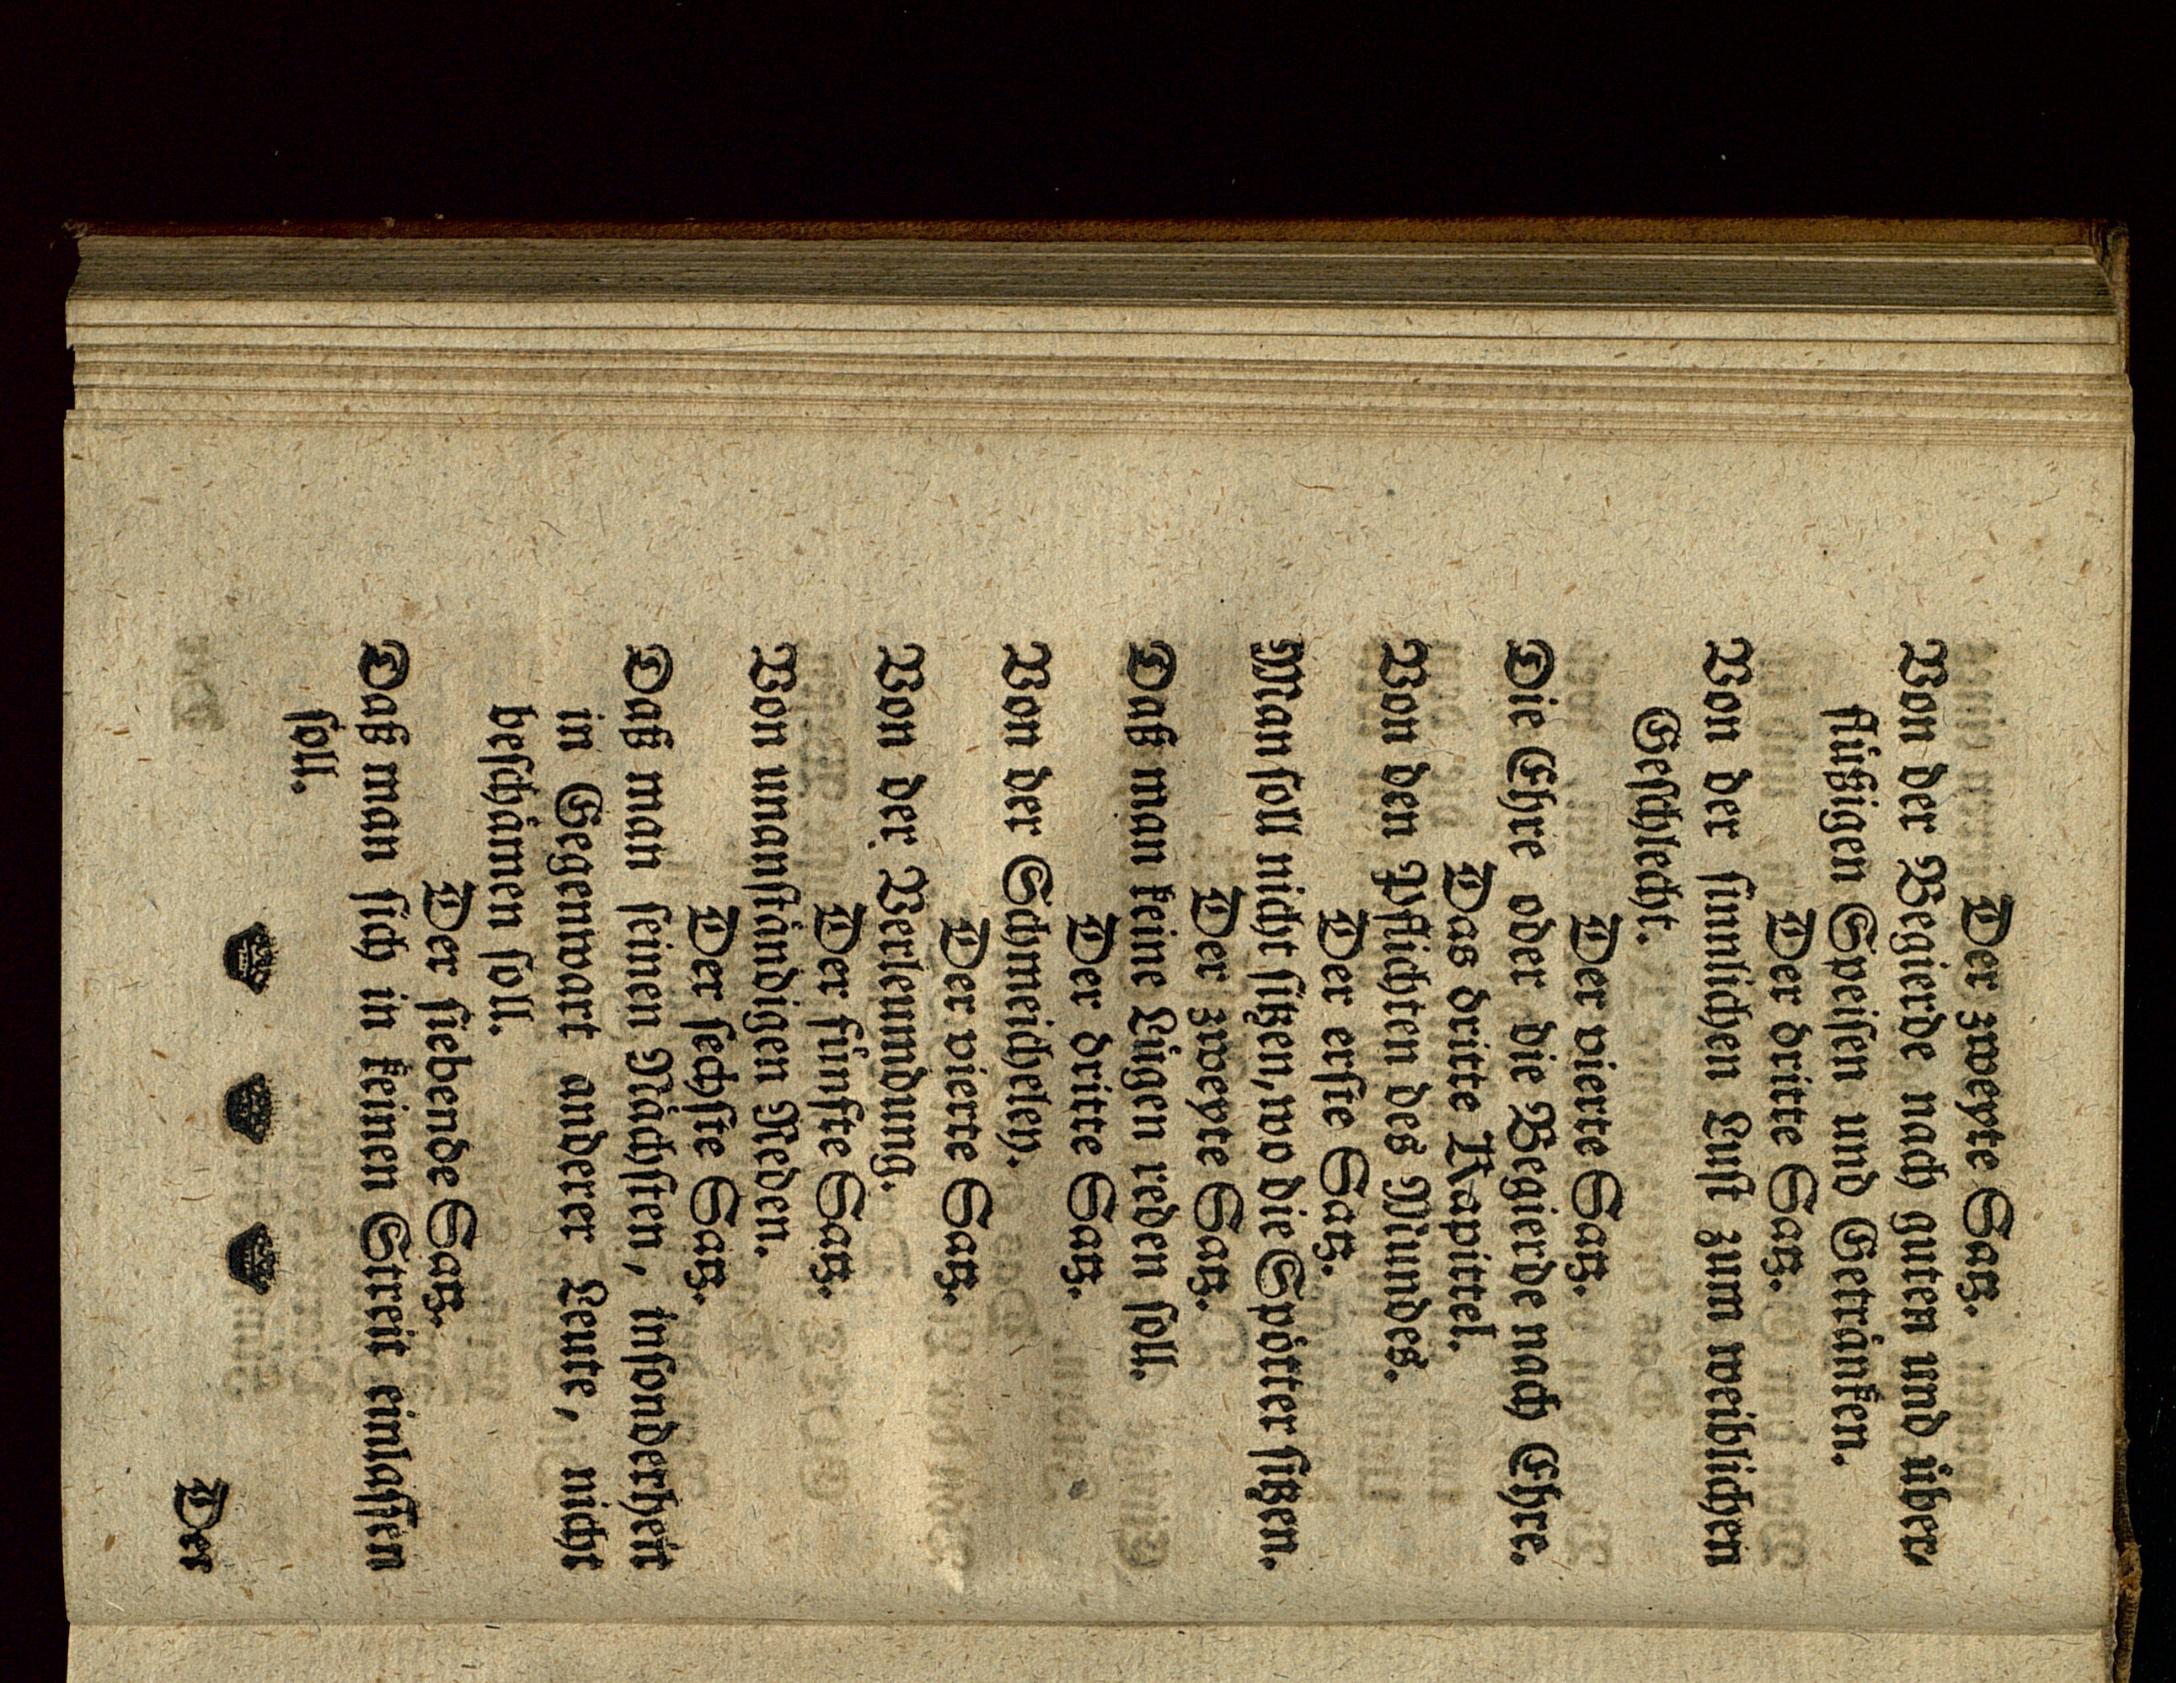 Der zweyte Satz.
Von der Begierde nach guten und über⸗
flüßigen Speisen und Getränken.
Der dritte Satz.
Von der sinnlichen Lust zum weiblichen
Geschlecht.
Der vierte Satz.
Die Ehre oder die Begierde nach Ehre.
Das dritte Kapittel.
Von den Pflichten des Mundes.
Der erste Satz.
Man soll nicht sitzen, wo die Spötter sitzen.
Der zweyte Satz.
Daß man keine Lügen reden soll.
Der dritte Satz.
Von der Schmeicheley.
Der vierte Satz.
Von der Verleumdung.
Der fünfte Satz.
Von unanständigen Reden.
Der sechste Satz.
Daß man seinen Nächsten, insonderheit
in Gegenwart anderer Leute, nicht
beschämen soll.
Der siebende Satz.
Daß man sich in keinen Streit einlassen
soll.
Der